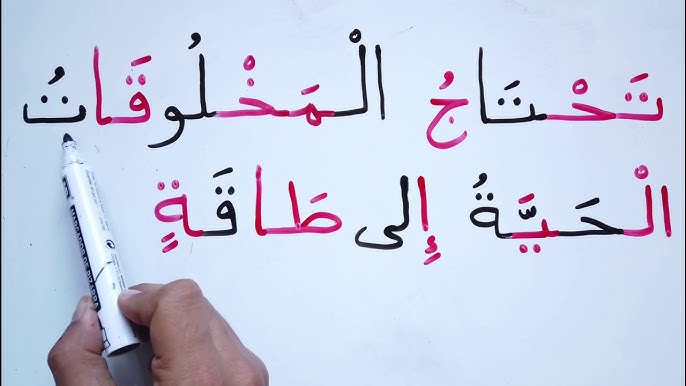 تَحْتَاجُ الْمَخْلُوقَاتُ
الْحَيَّةُ إِلى طَاقَةٍ